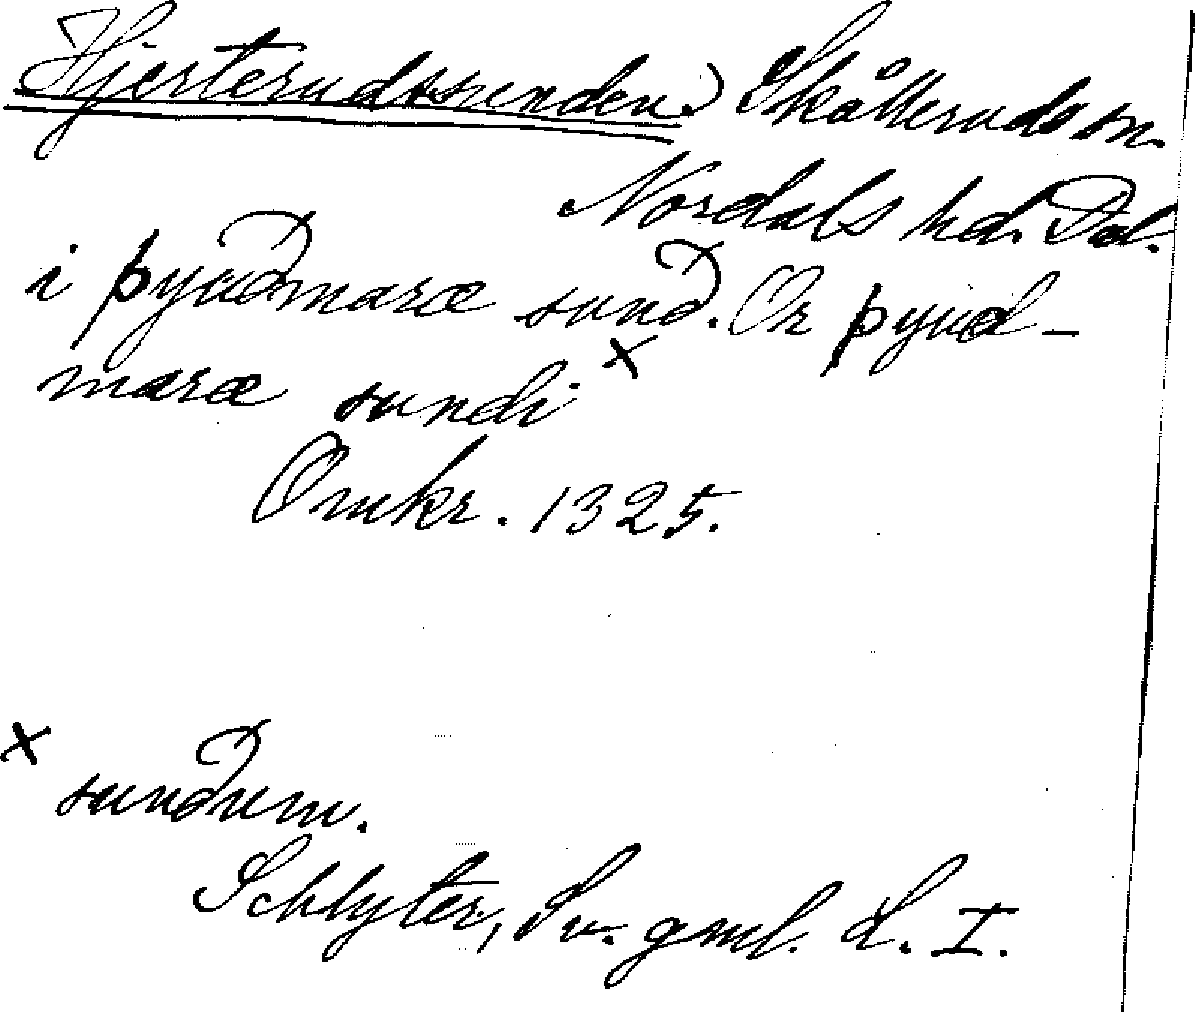 Hjerterudssunden.) Skålleruds sn.
Nordals hd. Dal.
i þyuðmaræ sund. Or þyud-
maræ sundi x
Omkr. 1325.
x sundum.
Schlyter, Sv. gml. L. I.